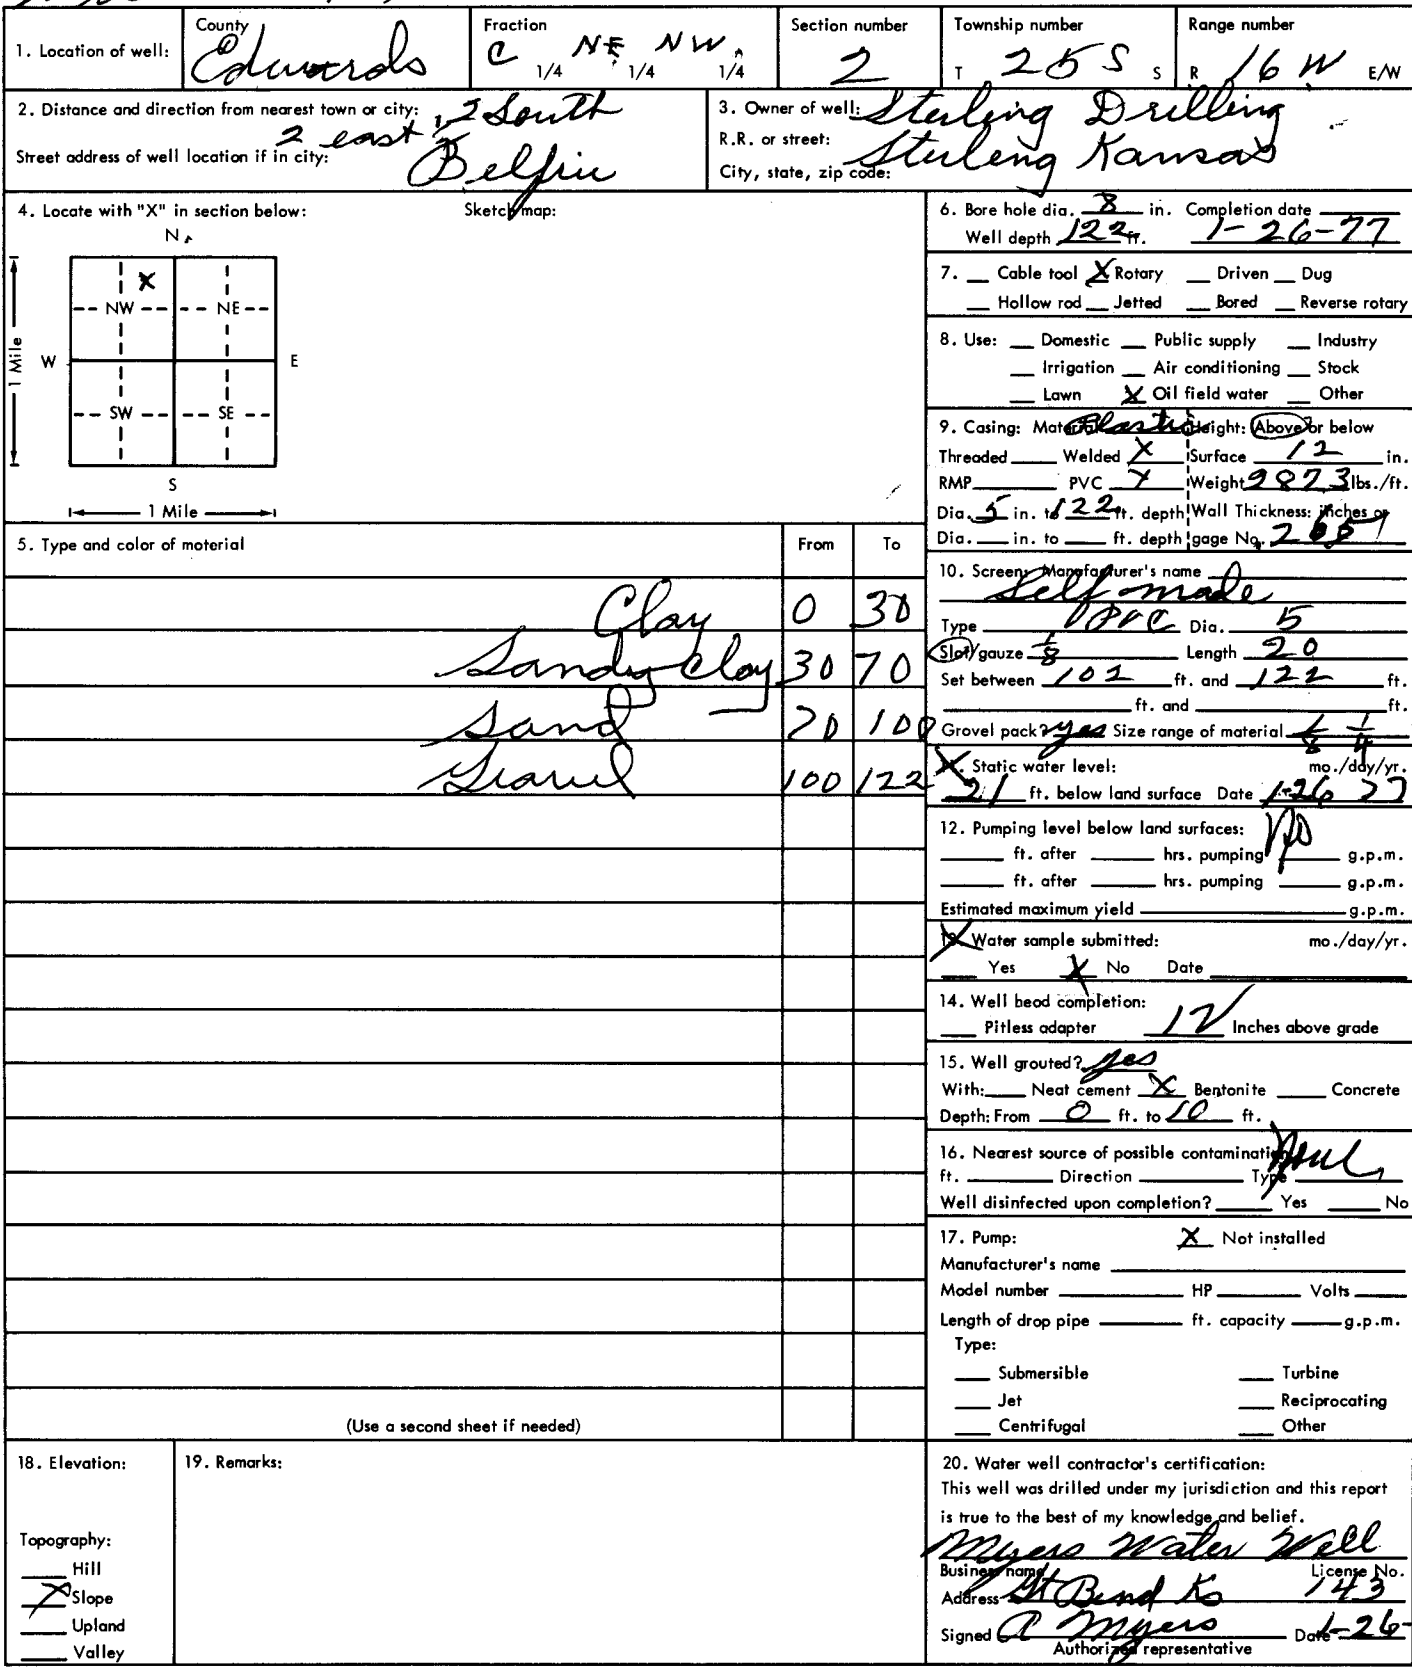 1. Location of well: County Edwards Fraction C NE NW 1/4 1/4 1/4 Section number 2 Township number T 25 S S Range number R 16 W E/W
2. Distance and direction from nearest town or city: 2 east, 2 South
Street address of well location if in city: Belpre
3. Owner of well: Sterling Drilling
R.R. or street:
City, state, zip code: Sterling Kansas
4. Locate with "X" in section below: Sketch map:
N
X
NW NE
W E
1 Mile
SW SE
S
1 Mile
5. Type and color of material From To
Clay 0 30
Sandy Clay 30 70
Sand 70 100
Gravel 100 122
(Use a second sheet if needed)
6. Bore hole dia. 8 in. Completion date
Well depth 122 ft. 1-26-77
7. Cable tool X Rotary Driven Dug
Hollow rod Jetted Bored Reverse rotary
8. Use: Domestic Public supply Industry
Irrigation Air conditioning Stock
Lawn X Oil field water Other
9. Casing: Material Plastic Height: Above or below
Threaded Welded X Surface 12 in.
RMP PVC X Weight 2.873 lbs./ft.
Dia. 5 in. to 122 ft. depth Wall Thickness: inches or
Dia. in. to ft. depth gage No.
10. Screen: Manufacturer's name
Self made
Type PVC Dia. 5
Slot/gauze 1/8 Length 20
Set between 102 ft. and 122 ft.
ft. and ft.
Gravel pack? yes Size range of material 1/8 1/4
Static water level: mo./day/yr.
21 ft. below land surface Date 1-26 77
12. Pumping level below land surfaces: No
ft. after hrs. pumping g.p.m.
ft. after hrs. pumping g.p.m.
Estimated maximum yield g.p.m.
13. Water sample submitted: mo./day/yr.
Yes X No Date
14. Well head completion:
Pitless adapter 12 Inches above grade
15. Well grouted? yes
With: Neat cement X Bentonite Concrete
Depth: From 0 ft. to 10 ft.
16. Nearest source of possible contamination
ft. Direction Type
Well disinfected upon completion? Yes No
17. Pump: X Not installed
Manufacturer's name
Model number HP Volts
Length of drop pipe ft. capacity g.p.m.
Type:
Submersible Turbine
Jet Reciprocating
Centrifugal Other
18. Elevation:
Topography:
Hill
X Slope
Upland
Valley
19. Remarks:
20. Water well contractor's certification:
This well was drilled under my jurisdiction and this report
is true to the best of my knowledge and belief.
Myers Water Well
Business name License No.
Address Gt Bend Ks 143
Signed A Myers Date 1-26-
Authorized representative